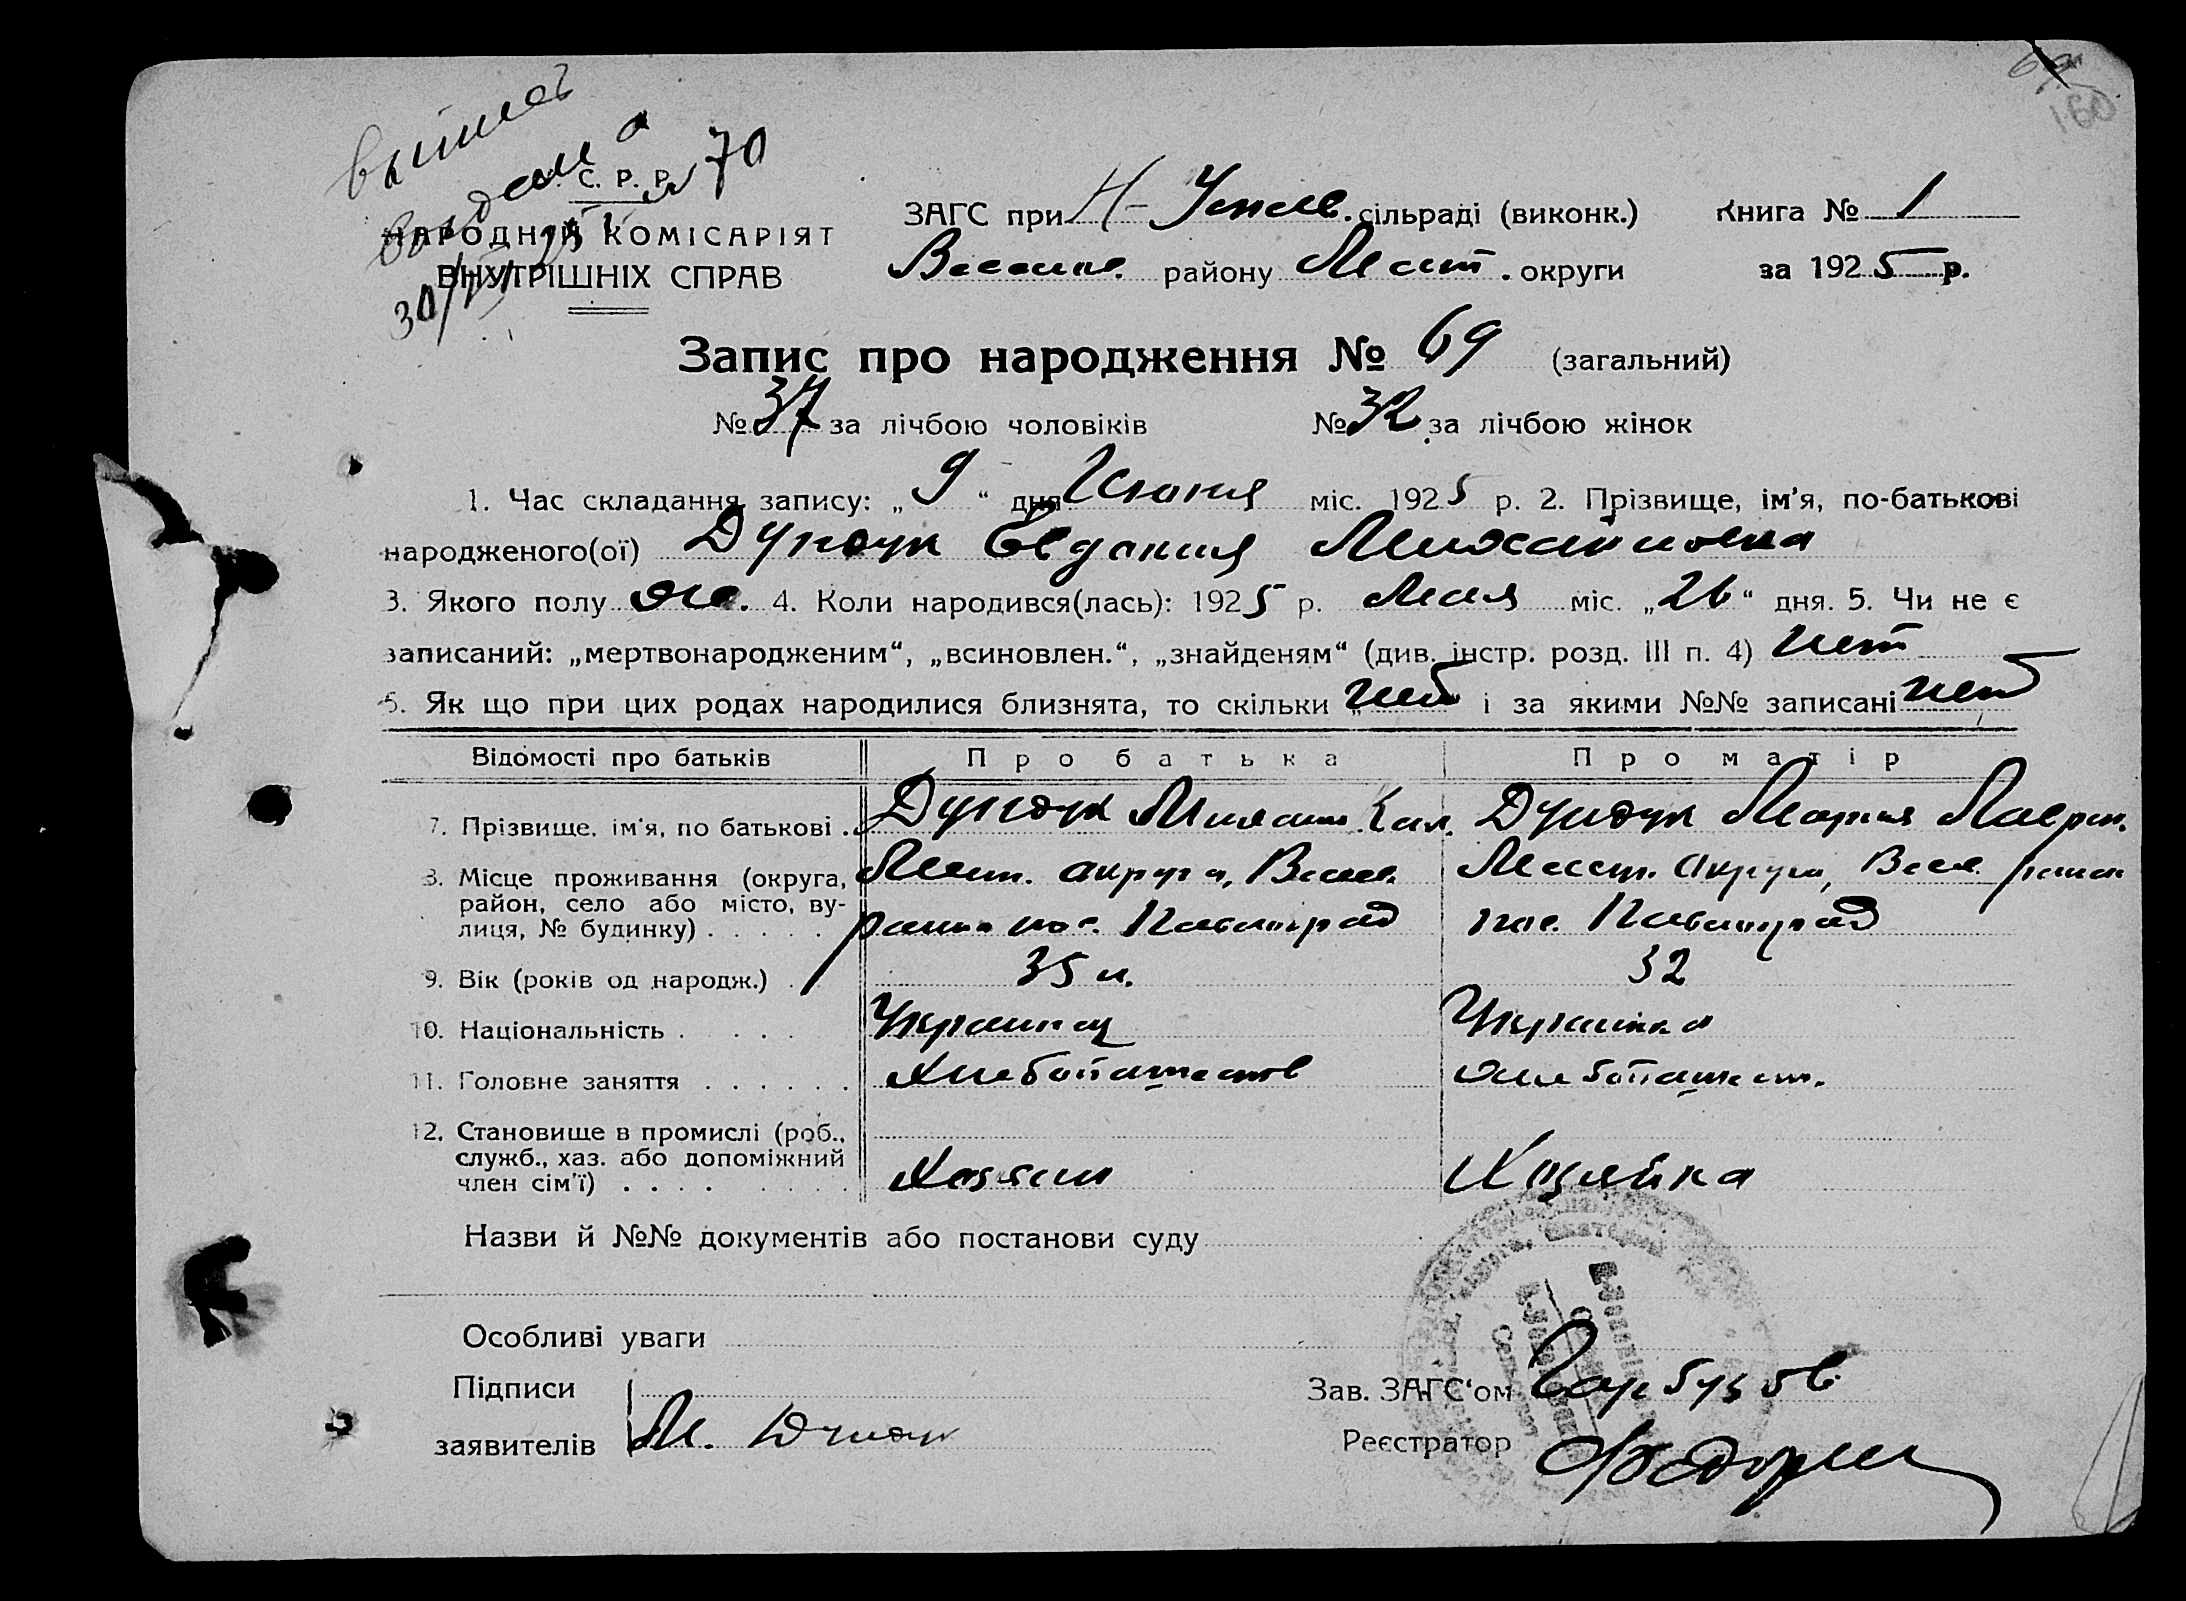 69
160
выпись
выдана
№ 70
30/VI 25 г.
С. Р. Р.
НАРОДНИЙ КОМІСАРІЯТ
ВНУТРІШНІХ СПРАВ
ЗАГС при Н- сільраді (виконк.) Книга № 1
району Мелит. округи за 1925 р.
Запис про народження № 69 (загальний)
№ 37 за лічбою чоловіків № 32 за лічбою жінок
1. Час складання запису: „ 9 “ дня Июня міс. 1925 р. 2. Прізвище, ім'я, по-батькові
народженого(ої) Дундук Евдокия Михайловна
3. Якого полу же. 4. Коли народився(лась): 1925 р. Мая міс. „26“ дня. 5. Чи не є
записаний: „мертвонародженим“, „всиновлен.“, „знайденям“ (див. інстр. розд. III п. 4) нет
6. Як що при цих родах народилися близнята, то скільки „нет“ і за якими №№ записані нет
Відомості про батьків Про батька Про матір
7. Прізвище, ім'я, по батькові . Дундук Михаил Дундук Мария Лаврен.
8. Місце проживання (округа, Мелит. округа, Весел. Мелит. Округа, Весел. район
район, село або місто, ву-
лиця, № будинку) . . . . . район пос. Павлоград пос. Павлоград
9. Вік (років од народж.) . 35 л. 32
10. Національність . . . . . Украинец Украинка
11. Головне заняття . . . . . . Хлебопашество Хлебопашест.
12. Становище в промислі (роб.,
служб., хаз. або допоміжний
член сім'ї) . . . . . . . . Хозяин Хозяйка
Назви й №№ документів або постанови суду
Особливі уваги
Підписи
заявителів М. Дундук
Зав. ЗАГС'ом Гарбузов
Реєстратор